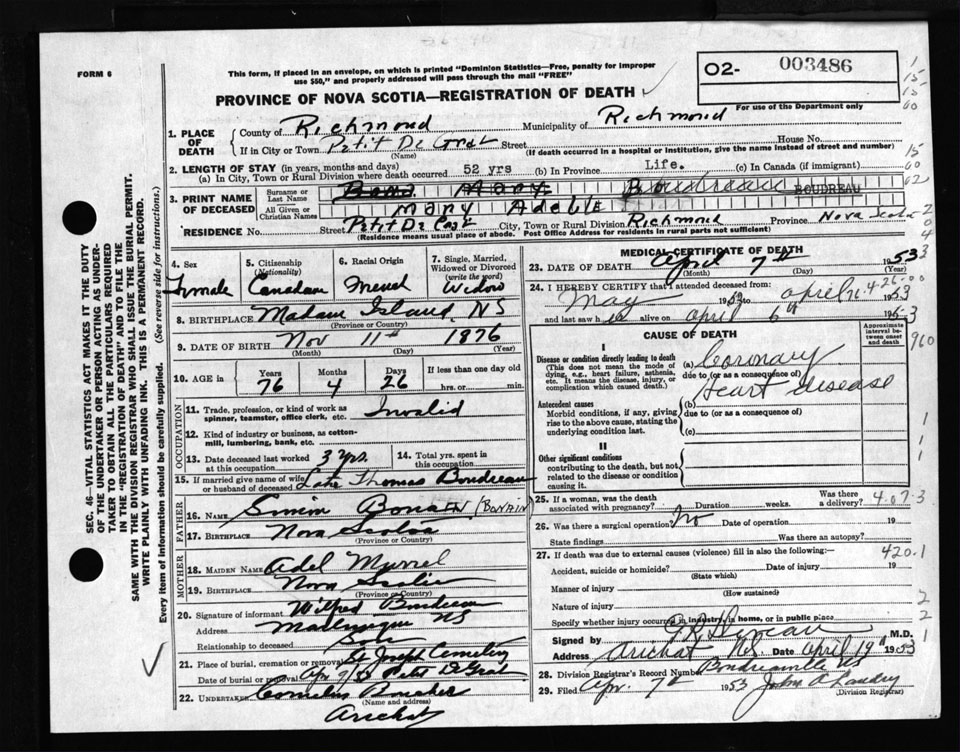 FORM 6
This form, if placed in an envelope, on which is printed "Dominion Statistics—Free, penalty for improper
use $50," and properly addressed will pass through the mail "FREE"
PROVINCE OF NOVA SCOTIA—REGISTRATION OF DEATH
02- 003486
For use of the Department only
1. PLACE OF DEATH
County of Richmond Municipality of Richmond
If in City or Town Petit De Grat Street House No.
(Name) (If death occurred in a hospital or institution, give the name instead of street and number)
2. LENGTH OF STAY (in years, months and days)
(a) In City, Town or Rural Division where death occurred 52 yrs (b) In Province Life. (c) In Canada (if immigrant)
3. PRINT NAME OF DECEASED
Surname or Last Name Bona Mary Boudreau BOUDREAU
All Given or Christian Names Mary Adele
RESIDENCE No. Street Petit De City, Town or Rural Division Richmond Province Nova Scotia
(Residence means usual place of abode. Post Office Address for residents in rural parts not sufficient)
SEC. 46—VITAL STATISTICS ACT MAKES IT THE DUTY
OF THE UNDERTAKER OR PERSON ACTING AS UNDER-
TAKER TO OBTAIN ALL THE PARTICULARS REQUIRED
IN THE "REGISTRATION OF DEATH" AND TO FILE THE
SAME WITH THE DIVISION REGISTRAR WHO SHALL ISSUE THE BURIAL PERMIT.
WRITE PLAINLY WITH UNFADING INK. THIS IS A PERMANENT RECORD.
Every item of information should be carefully supplied. (See reverse side for instructions.)
4. Sex
Female
5. Citizenship (Nationality)
Canadian
6. Racial Origin
French
7. Single, Married, Widowed or Divorced (write the word)
Widow
8. BIRTHPLACE Madame Island, NS
(Province or Country)
9. DATE OF BIRTH Nov 11th 1876
(Month) (Day) (Year)
10. AGE in Years 76 Months 4 Days 26 If less than one day old hrs. or min.
OCCUPATION
11. Trade, profession, or kind of work as spinner, teamster, office clerk, etc. Invalid
12. Kind of industry or business, as cotton-mill, lumbering, bank, etc.
13. Date deceased last worked at this occupation 3 yrs.
14. Total yrs. spent in this occupation
15. If married give name of wife or husband of deceased Late Thomas Boudreau
FATHER
16. NAME Simon Bonain (BONAIN)
17. BIRTHPLACE Nova Scotia
(Province or Country)
MOTHER
18. MAIDEN NAME Adel
19. BIRTHPLACE Nova Scotia
(Province or Country)
20. Signature of informant Wilfred Boudreau
Address NS
Relationship to deceased Son
21. Place of burial, cremation or removal St Joseph Cemetery
Date of burial or removal Apr 9/53 Petit De Grat
22. UNDERTAKER Cornelius
(Name and address)
Arichat
MEDICAL CERTIFICATE OF DEATH
23. DATE OF DEATH April 7th 1953
(Month) (Day) (Year)
24. I HEREBY CERTIFY that I attended deceased from:
May 1953 to April 1953
and last saw h alive on April 6th 1953
CAUSE OF DEATH
Approximate interval between onset and death
I
Disease or condition directly leading to death
(This does not mean the mode of dying, e.g., heart failure, asthenia, etc. It means the disease, injury, or complication which caused death.)
(a) Coronary
due to (or as a consequence of)
Heart disease
Antecedent causes
Morbid conditions, if any, giving rise to the above cause, stating the underlying condition last.
(b)
due to (or as a consequence of)
(c)
II
Other significant conditions
contributing to the death, but not related to the disease or condition causing it.
25. If a woman, was the death associated with pregnancy? Duration weeks. Was there a delivery?
26. Was there a surgical operation? No Date of operation 19
State findings Was there an autopsy?
27. If death was due to external causes (violence) fill in also the following:—
420.1
Accident, suicide or homicide? Date of 19
(State which)
Manner of injury
(How sustained)
Nature of injury
Specify whether injury occurred in industry, in home, or in public place
Signed by M.D.
Address Arichat N.S. Date April 19 1953
28. Division Registrar's Record Number Boudreauville NS
29. Filed Apr. 7th 1953 John A Landry
(Division Registrar)